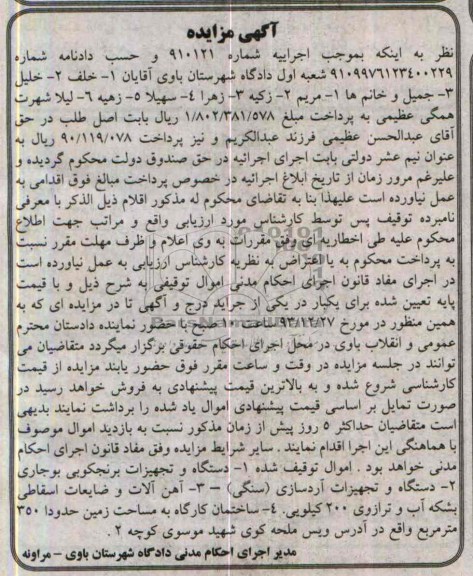 آگهی مزایده
نظر به اینکه بموجب اجراییه شماره ۹۱۰۱۲۱ و حسب دادنامه شماره
۹۱۰۹۹۷۶۱۲۳۴۰۰۲۲۹ شعبه اول دادگاه شهرستان باوی آقایان ۱- خلف ۲- خلیل
۳- جمیل و خانم ها ۱- مریم ۲- زکیه ۳- زهرا ۴- سهیلا ۵- زهیه ۶- لیلا شهرت
همگی عظیمی به پرداخت مبلغ ۱/۸۰۲/۳۸۱/۵۷۸ ریال بابت اصل طلب در حق
آقای عبدالحسن عظیمی فرزند عبدالکریم و نیز پرداخت ۹۰/۱۱۹/۰۷۸ ریال به
عنوان نیم عشر دولتی بابت اجرای اجرائیه در حق صندوق دولت محکوم گردیده و
علیرغم مرور زمان از تاریخ ابلاغ اجرائیه در خصوص پرداخت مبالغ فوق اقدامی به
عمل نیاورده است علیهذا بنا به تقاضای محکوم له مذکور اقلام ذیل الذکر با معرفی
نامبرده توقیف پس توسط کارشناس مورد ارزیابی واقع و مراتب جهت اطلاع
محکوم علیه طی اخطاریه ای وفق مقررات به وی اعلام و ظرف مهلت مقرر نسبت
به پرداخت محکوم به یا اعتراض به نظریه کارشناس ارزیابی به عمل نیاورده است
در اجرای مفاد قانون اجرای احکام مدنی اموال توقیفی به شرح ذیل و با قیمت
پایه تعیین شده برای یکبار در یکی از جراید درج و آگهی تا در مزایده ای که به
همین منظور در مورخ ۹۳/۱۲/۲۷ ساعت صبح با حضور نماینده دادستان محترم
عمومی و انقلاب باوی در محل اجرای احکام حقوقی برگزار میگردد متقاضیان می
توانند در جلسه مزایده در وقت و ساعت مقرر فوق حضور یابند مزایده از قیمت
کارشناسی شروع شده و به بالاترین قیمت پیشنهادی به فروش خواهد رسید در
صورت تمایل بر اساسی قیمت پیشنهادی اموال یاد شده را برداشت نمایند بدیهی
است متقاضیان حداکثر ۵ روز پیش از زمان مذکور نسبت به بازدید اموال موصوف
با هماهنگی این اجرا اقدام نمایند . سایر شرایط مزایده وفق مفاد قانون اجرای احکام
مدنی خواهد بود . اموال توقیف شده ۱- دستگاه و تجهیزات برنجکوبی بوجاری
۲- دستگاه و تجهیزات آردسازی (سنگی) – ۳- آهن آلات و ضایعات اسقاطی
بشکه آب و ترازوی ۲۰۰ کیلویی. ۴- ساختمان کارگاه به مساحت زمین حدودا ۳۵۰
مترمربع واقع در آدرس ویس ملحه کوی شهید موسوی کوچه ۲ .
مدیر اجرای احکام مدنی دادگاه شهرستان باوی – مراونه